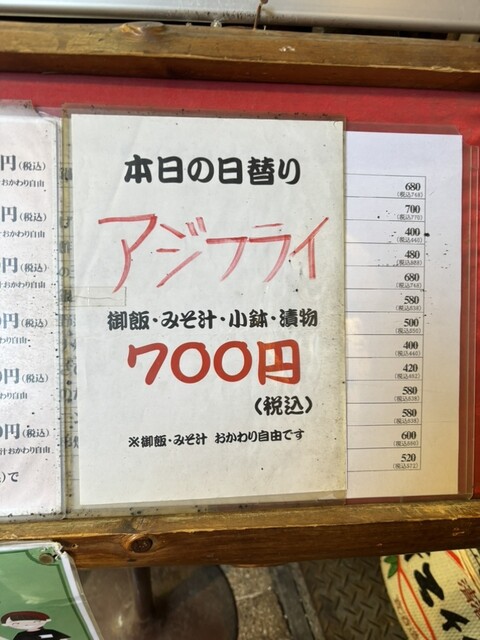 本日の日替り
アジフライ
御飯・みそ汁・小鉢・漬物
700円
(税込)
※御飯・みそ汁 おかわり自由です
円(税込)
おかわり自由
円(税込)
おかわり自由
円(税込)
おかわり自由
円(税込)
わり自由
円(税込)
かわり自由
円(税込)
汁 おかわり自由
)で
680
(税込748)
700
(税込770)
400
(税込440)
480
(税込528)
680
(税込748)
580
(税込638)
500
(税込550)
400
(税込440)
420
(税込462)
580
(税込638)
580
(税込638)
600
(税込660)
520
(税込572)